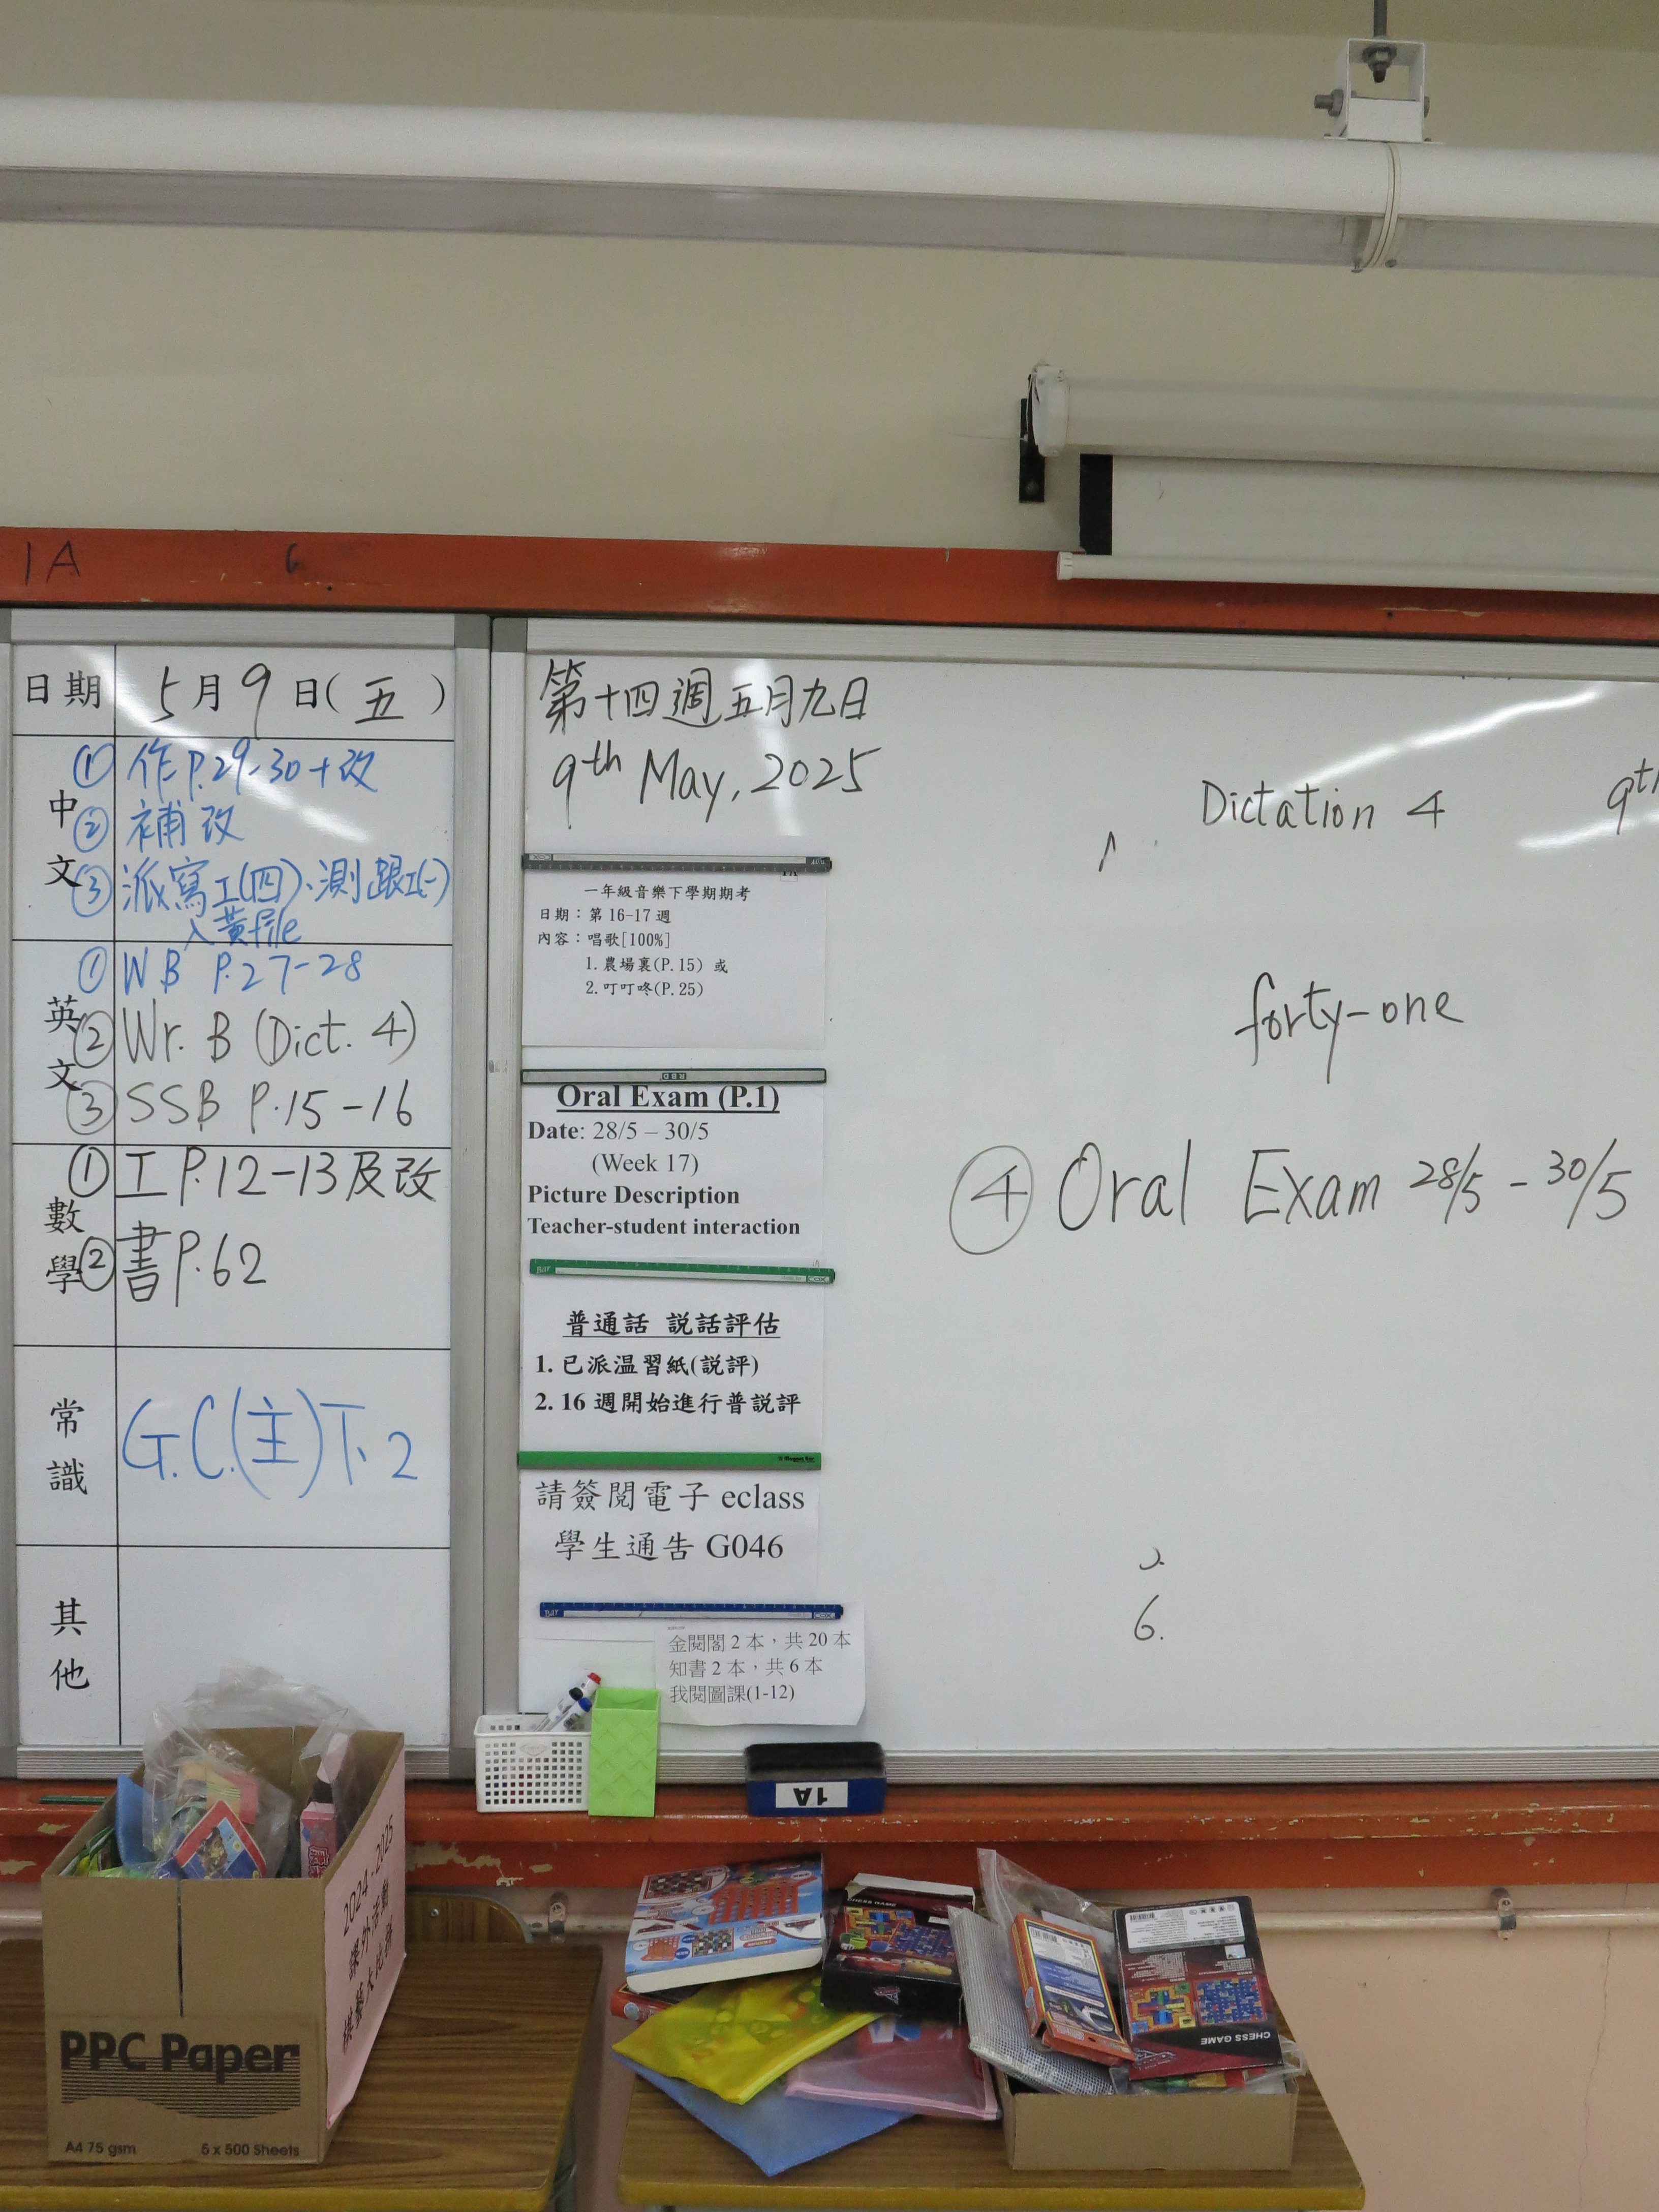 1A
6
日期 5月9日(五)
中文
① 作P.29-30+改
② 補改
③ 派寫工(四)、測跟工(一)
入黃file
英文
① WB P.27-28
② Wr. B (Dict. 4)
③ SSB P.15-16
數學
① 工P.12-13及改
② 書P.62
常識
G.C.(主)下.2
其他
第十四週五月九日
9th May, 2025
一年級音樂下學期期考
日期：第16-17週
內容：唱歌[100%]
1.農場裏(P.15) 或
2.叮叮咚(P.25)
Oral Exam (P.1)
Date: 28/5 – 30/5
(Week 17)
Picture Description
Teacher-student interaction
普通話 說話評估
1. 已派温習紙(說評)
2. 16週開始進行普說評
請簽閱電子 eclass
學生通告 G046
金閱閣2本，共20本
知書2本，共6本
我閱圖課(1-12)
Dictation 4
9th
forty-one
④ Oral Exam 28/5 - 30/5
6.
1A
2024-2025
課外活動
PPC Paper
A4 75 gsm
5 x 500 Sheets
CHESS GAME